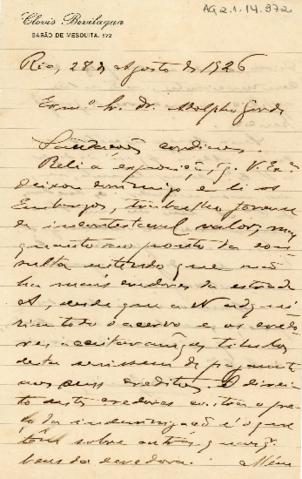 AG 2.1.14.372
Clovis Bevilaqua
BARÃO DE MESQUITA, 572
Rio, 28 de Agosto de 1926
Exmº Sr. Dr. Adolpho Gordo
Saudações cordiaes.
Reli a exposição, q. V. Exª
deixou commigo e li os
Embargos, trabalho forense
de incontestavel valor, mas
quanto ao ponto da con-
sulta entendo que não
ha mais credores da estrada
A, desde que a N adqui-
riu todo o acervo e os credo-
res acceitaram, os titulos
desta em pagamento
aos seus creditos. O direi-
to destes credores
é o que
têm sobre
bens da devedora. Além